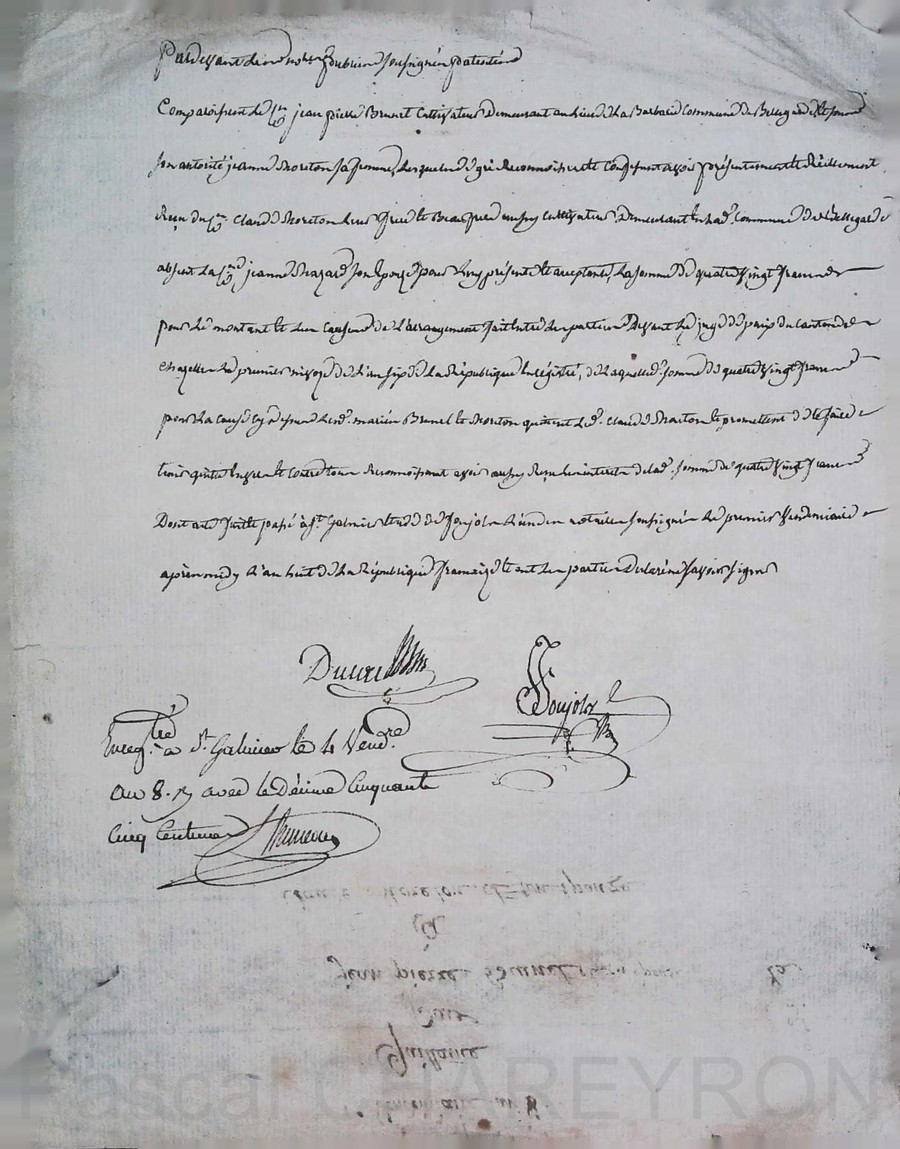 Pardevant le no.re public soussigné patenté
Comparoissent le s.r jean pierre Brunel Cultivateur demeurant au lieu de la Barbarie Commune de Bellegarde et sous
son autorité jeanne Moreton sa femme, lesquels de gré Reconnoissent et Confessent avoir présentement et Réellement
Reçu du s.r Claude Moreton leur frère et Beau frère aussy cultivateur demeurant en lad. Commune de Bellegarde
absent la jeanne son Epouse pour luy présente et acceptante, la somme de quatre vingt francs
pour le montant et de l'arrangement fait entre les parties devant le juge de paix du canton de
Chazelles le premier nivose de l'an sept de la République Enregistré, de laquelle somme de quatre vingt francs
pour la cause cy dessus lesd. mariés Brunel et Moreton quittent led. Claude Moreton et promettent de le faire
tenir quitte envers et contre tous Reconnoissant avoir aussy Reçu les interets de lad. somme de quatre vingt francs
Dont acte fait et passé à S.t Galmier étude de Poujolz l'un des notaires soussignés le premier Vendemiaire
après midy l'an huit de la République française et ont les parties déclaré ne savoir signer
Ducret
Poujolz
Enreg.tré a S.t Galmier le 4 Vend.re
an 8. R avec le Décime Cinquante
Cinq Centimes
Moreton et son épouze
à
jean pierre Brunel
Quittance
Pascal CHAREYRON